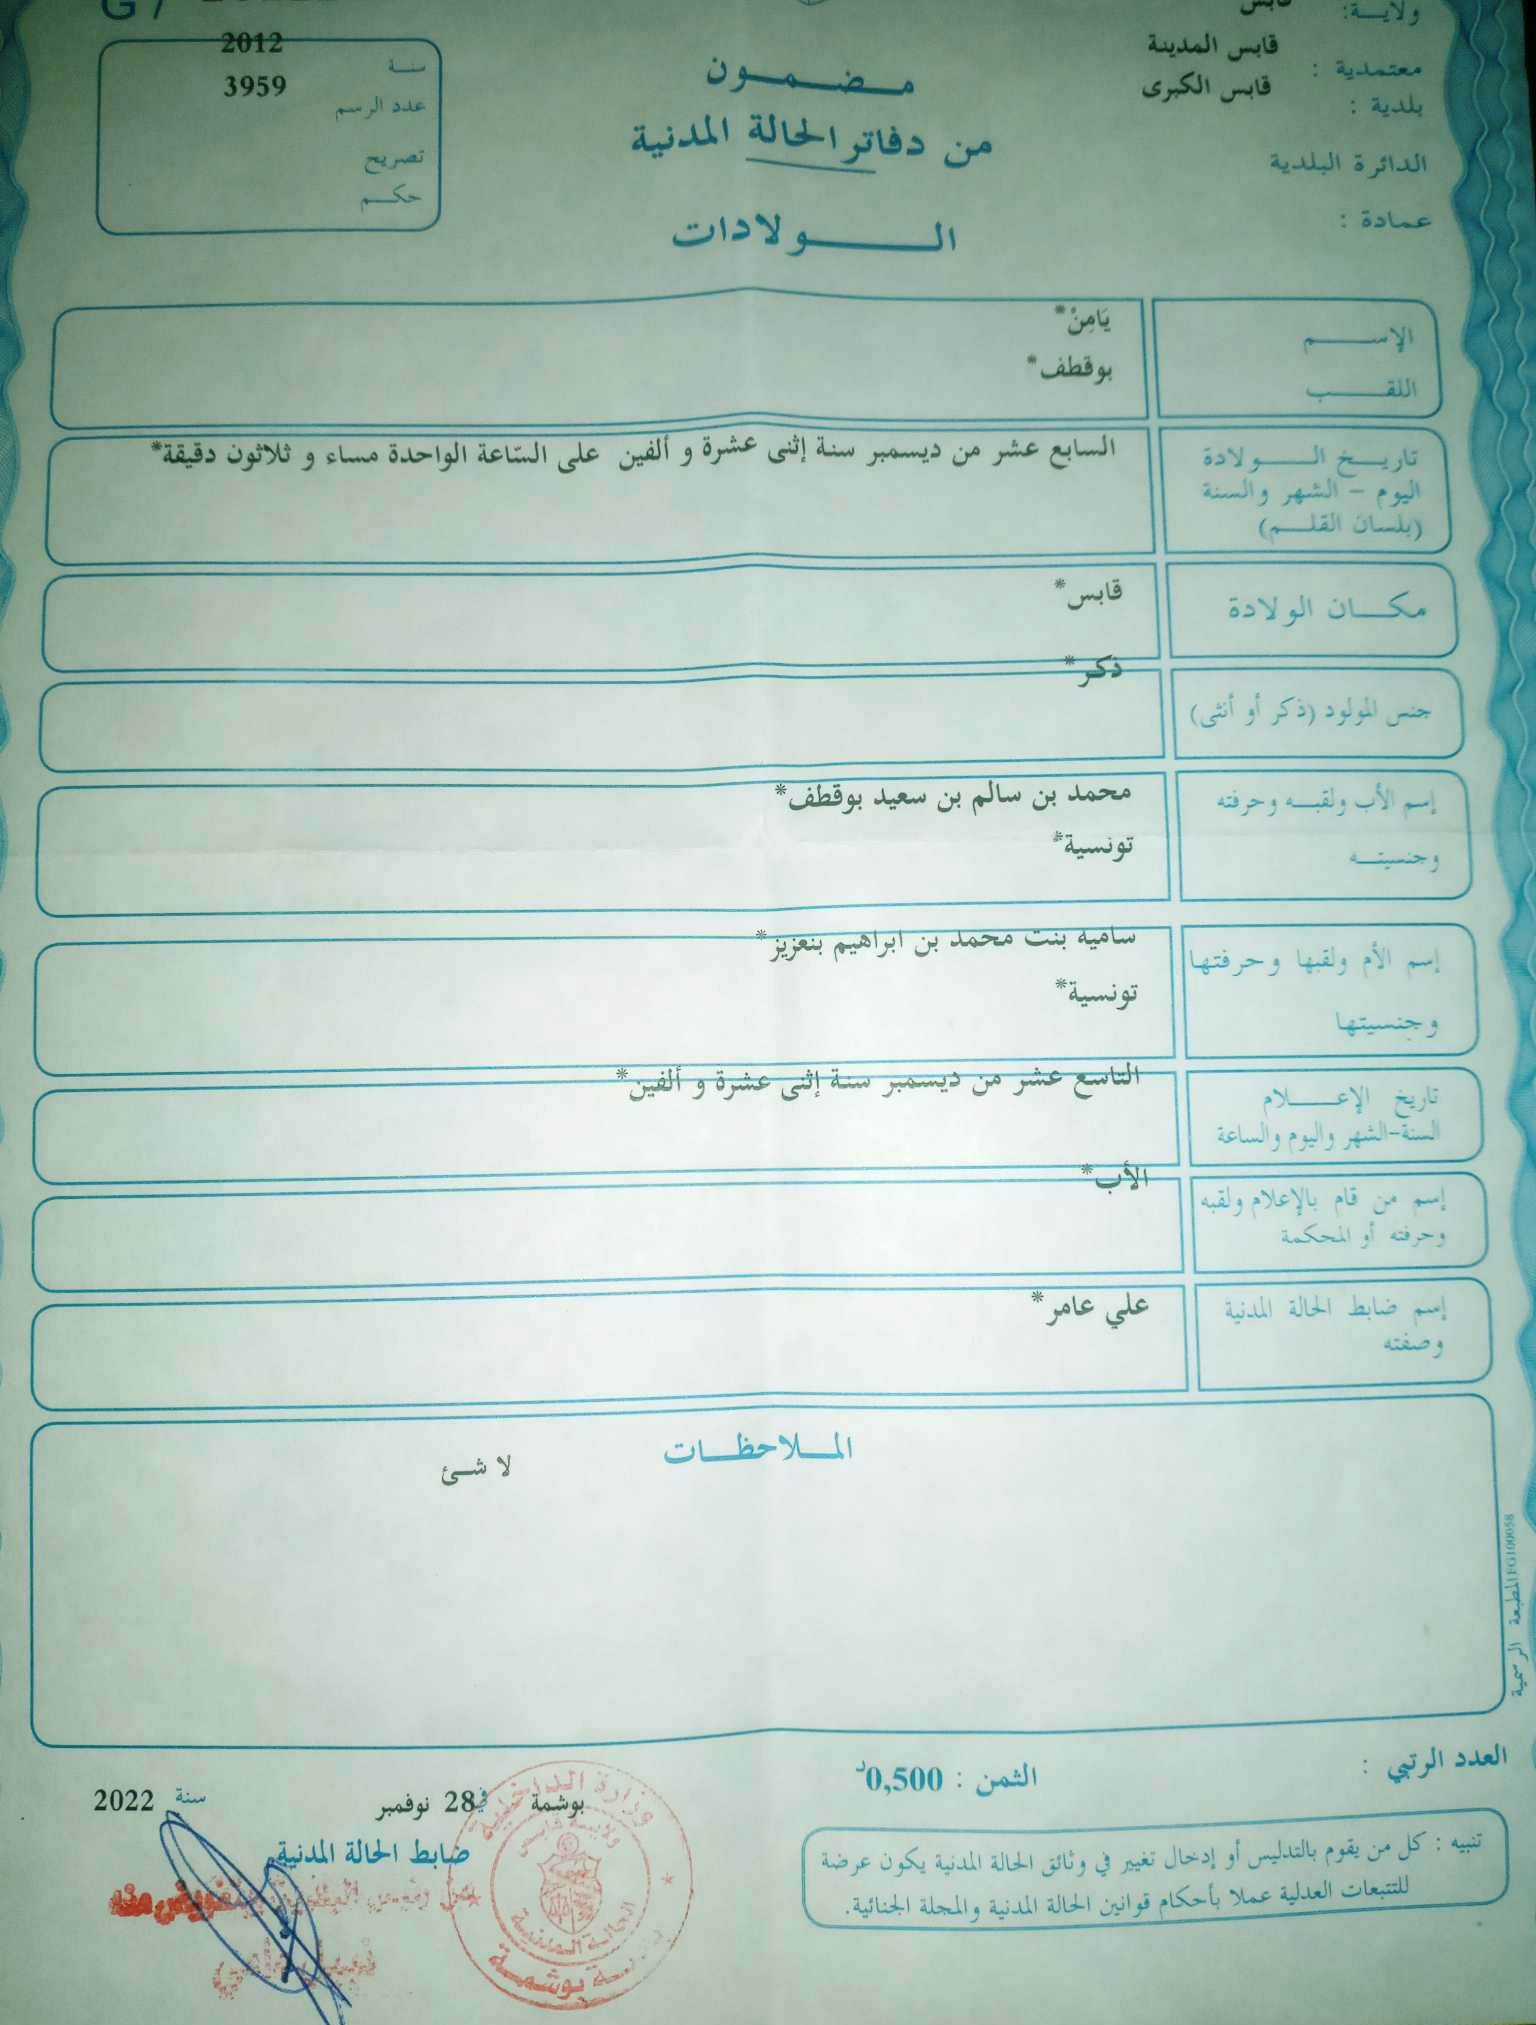 ولايـة: قابس
معتمدية : قابس المدينة
بلدية : قابس الكبرى
الدائرة البلدية
عمادة :
مـضـمـون
من دفاتر الحالة المدنية
الـولادات
سنـة 2012
عدد الرسم 3959
تصريح
حكـم
الإســم يَامِنْ*
اللقـب بوقطف*
تاريـخ الـولادة السابع عشر من ديسمبر سنة إثنى عشرة و ألفين على السّاعة الواحدة مساء و ثلاثون دقيقة*
اليوم - الشهر والسنة
(بلسان القلـم)
مكـان الولادة قابس*
جنس المولود (ذكر أو أنثى) ذكر*
إسم الأب ولقبـه وحرفته محمد بن سالم بن سعيد بوقطف*
وجنسيتـه تونسية*
إسم الأم ولقبها وحرفتها ساميه بنت محمد بن ابراهيم بنعزيز*
وجنسيتها تونسية*
تاريخ الإعـلام التاسع عشر من ديسمبر سنة إثنى عشرة و ألفين*
السنة-الشهر واليوم والساعة
إسم من قام بالإعلام ولقبه الأب*
وحرفته أو المحكمة
إسم ضابط الحالة المدنية علي عامر*
وصفته
المـلاحظـات
لا شـئ
المطبعة الرسمية
العدد الرتبي :
الثمن : 0,500د
بوشمة في 28 نوفمبر سنة 2022
ضابط الحالة المدنية
تنبيه : كل من يقوم بالتدليس أو إدخال تغيير في وثائق الحالة المدنية يكون عرضة
للتتبعات العدلية عملا بأحكام قوانين الحالة المدنية والمجلة الجنائية.
وزارة الداخلية
ولايـة قابس
الحالة المدنية
بلديـة بوشمـة